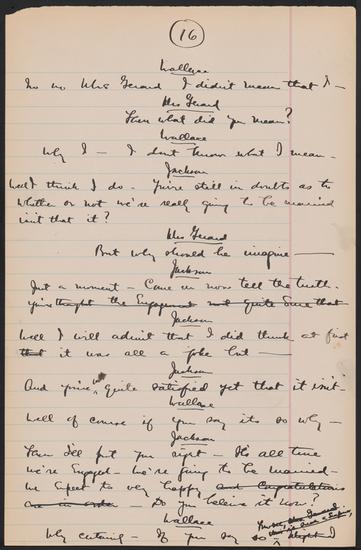 16
Wallace
No no Mrs Gerard I didn't mean that I —
Mrs Gerard
Then what did you mean?
Wallace
Why I — I don't know what I mean —
Jackson
Well I think I do. You're still in doubts as to
whether or not we're really going to be married
isn't that it?
Mrs Gerard
But why should he imagine —
Jackson
Just a moment — Come in now tell the truth.
you thought the Engagement not quite sure that
Jackson
Well I will admit that I did think at first
that it was all a joke but —
Jackson
And you're quite satisfied yet that it isn't —
Wallace
Well of course if you say it's so why —
Jackson
Then I'll put you right — It's all true
we're Engaged — We're going to be married —
We expect to be very happy and Congratulations
are in order — Do you believe it now?
Wallace
Why certainly — If you say so I